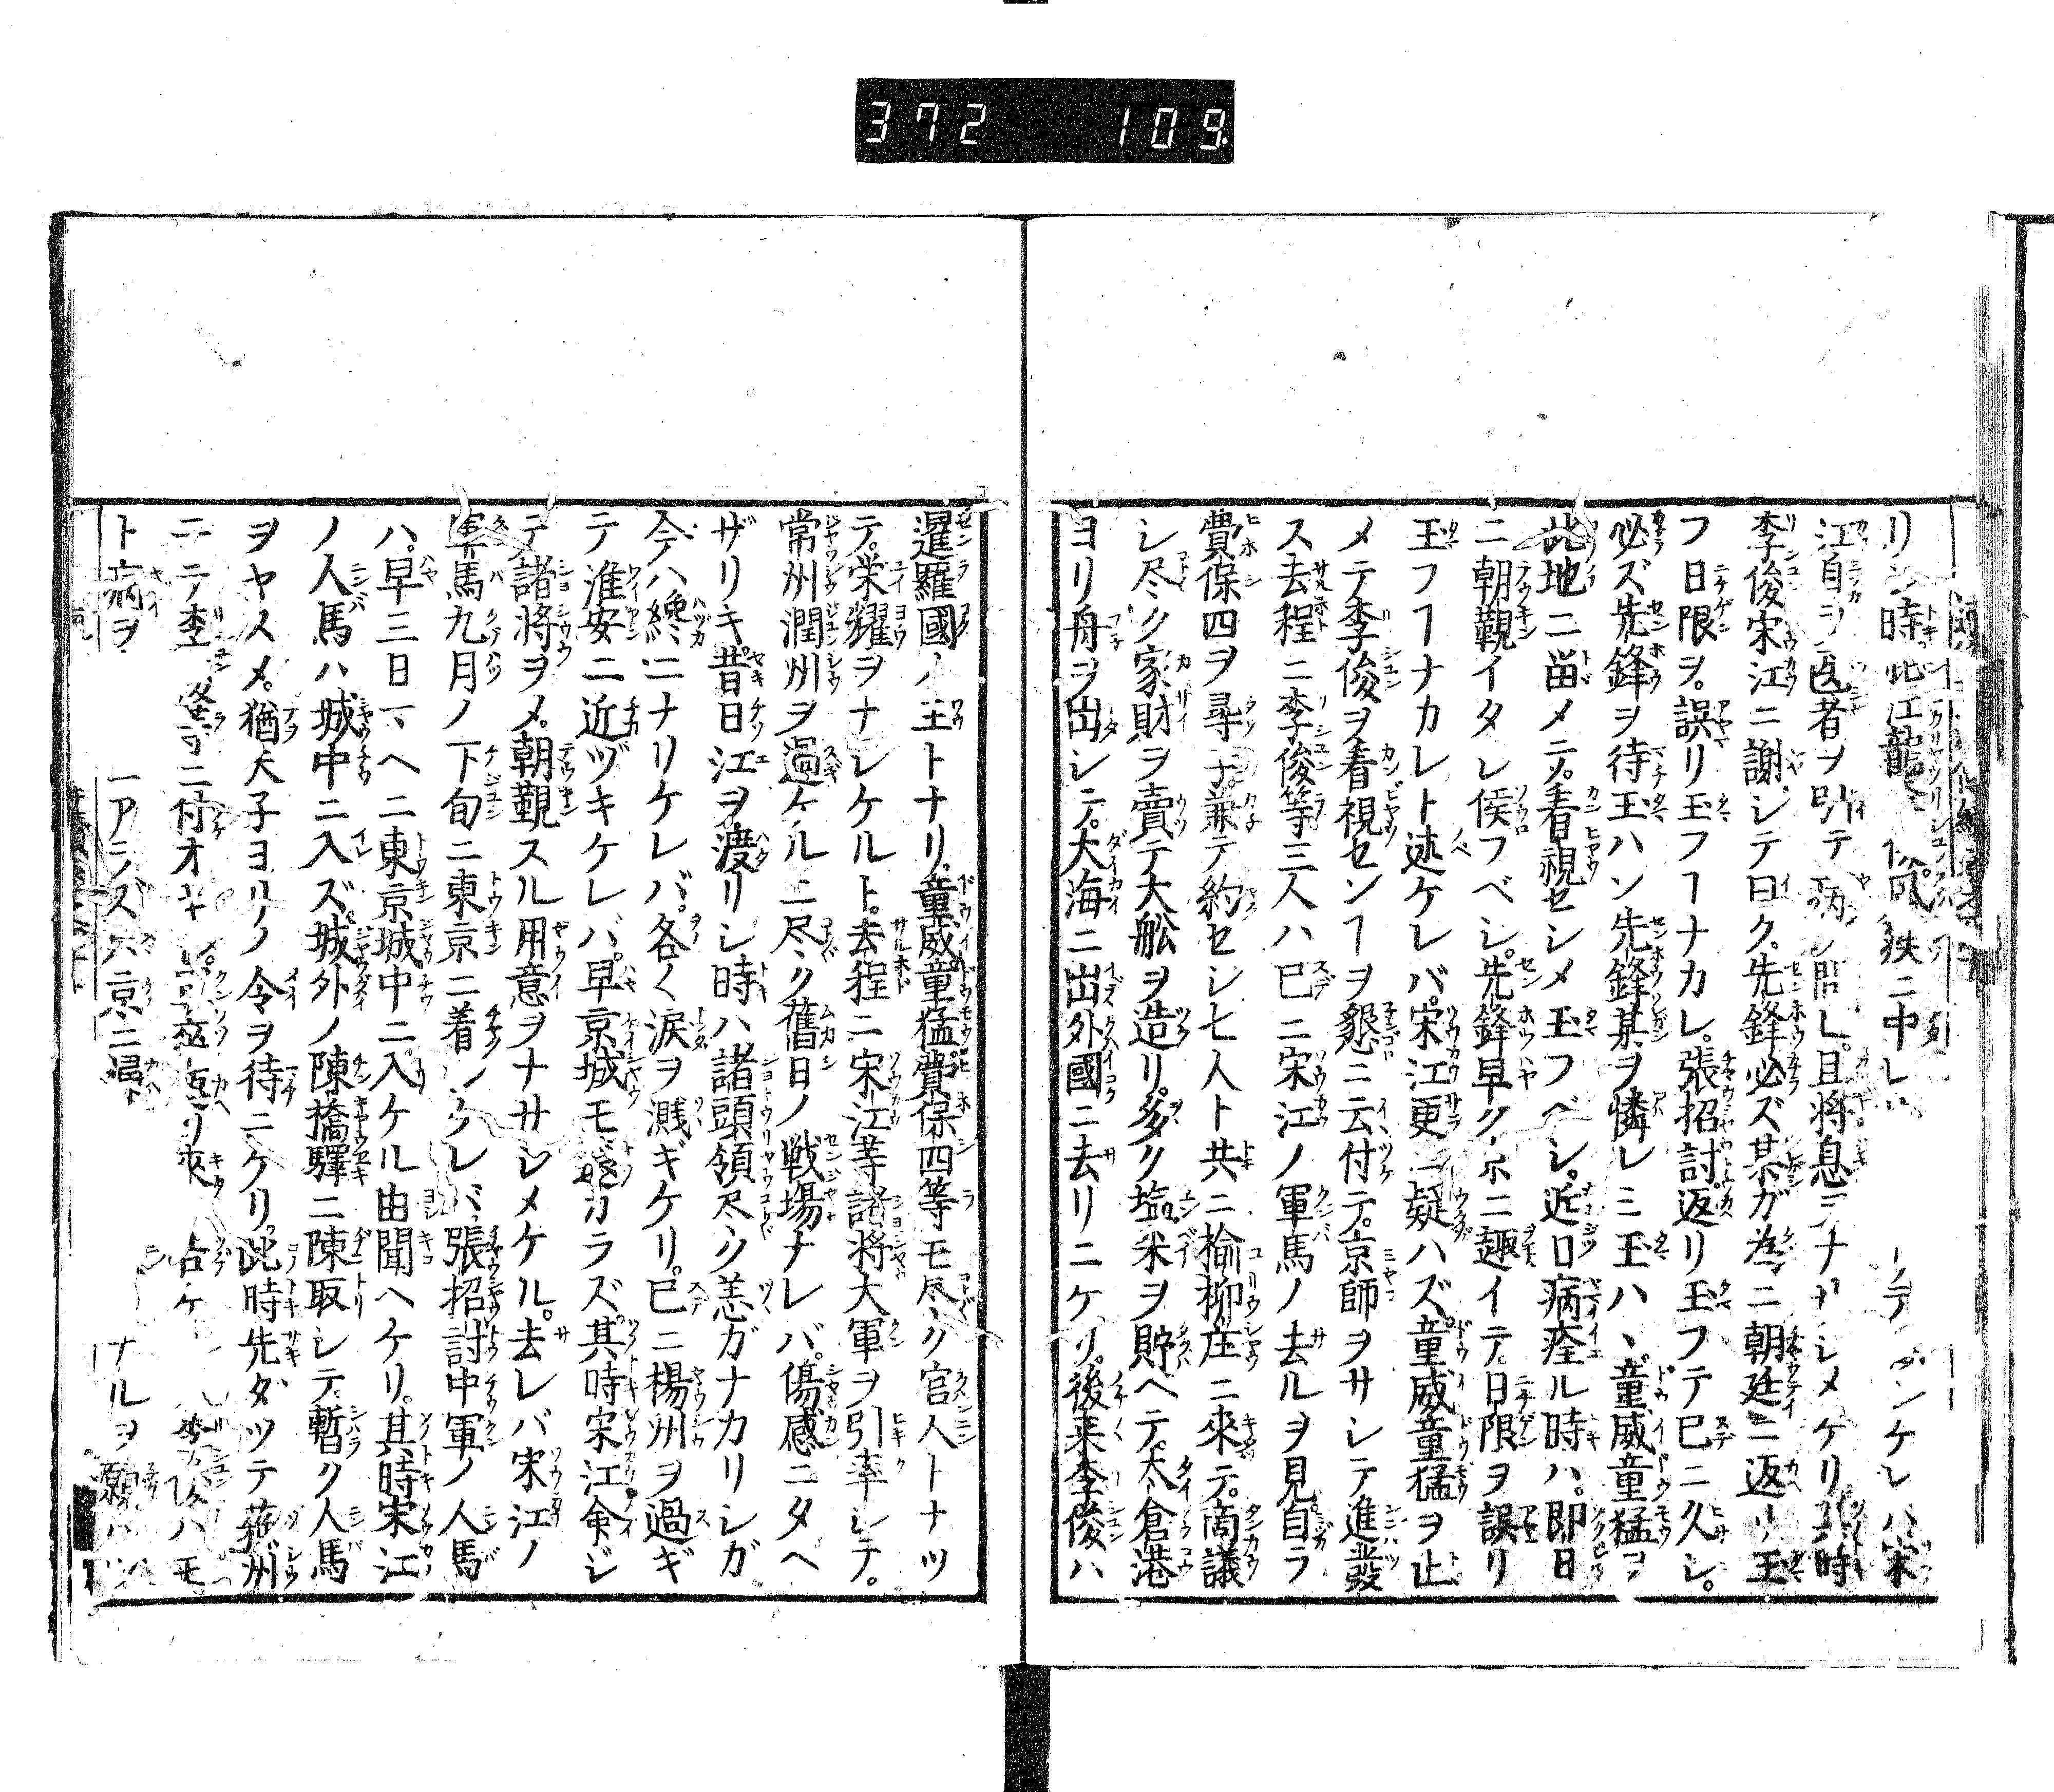 372 109
リシ時此江龍 秩ニ中レ ケレハ宋
江自ラ医者ヲ引テ病 且将息 シメケリ其時
李俊宋江ニ謝シテ曰ク先鋒必ズ某ガ為ニ朝廷ニ返リ玉
フ日限ヲ誤リ玉フヿナカレ。張招討返リ玉フテ已ニ久シ。
必ズ先鋒ヲ待玉ハン先鋒某ヲ憐レミ玉ハヽ童威童猛ヲ
此地ニ畄メテ。看視セシメ玉フベシ。近日病痊ル時ハ。即日
ニ朝覲イタシ候フベシ。先鋒早ク京ニ趣イテ。日限ヲ誤リ
玉フヿナカレト述ケレバ。宋江更ニ疑ハズ。童威童猛ヲ止
メテ李俊ヲ看視センヿヲ懇ニ云付テ。京師ヲサシテ進發
ス去程ニ李俊等三人ハ已ニ宋江ノ軍馬ノ去ルヲ見自ラ
費保四ヲ尋ナ兼テ約セシ七人ト共ニ楡柳庄ニ來テ。商議
シ尽ク家財ヲ賣テ大舩ヲ造リ。多ク塩米ヲ貯ヘテ。太倉港
ヨリ舟ヲ出シテ。大海ニ出外國ニ去リニケリ。後来李俊ハ
暹羅國ノ王トナリ。童威童猛費保四等モ尽ク官人トナツ
テ。栄耀ヲナシケルト。去程ニ宋江等諸将大軍ヲ引率シテ。
常州潤州ヲ過ケルニ尽ク舊日ノ戦場ナレバ。傷感ニタヘ
ザリキ。昔日江ヲ渡リシ時ハ諸頭領尽ク恙ガナカリシガ
今ハ纔ニナリケレバ。各〱涙ヲ濺ギケリ。已ニ楊州ヲ過ギ
テ淮安ニ近ヅキケレバ。早京城モ遠カラズ。其時宋江令シ
テ諸将ヲメ。朝覲スル用意ヲナサシメケル。去レバ宋江ノ
軍馬九月ノ下旬ニ東京ニ着ノケレバ張招討中軍ノ人馬
ハ。早三日マヘニ東京城中ニ入ケル由聞ヘケリ。其時宋江
ノ人馬ハ城中ニ入ズ。城外ノ陳橋驛ニ陳取シテ暫ク人馬
ヲヤスメ。猶天子ヨルノ令ヲ待ニケリ。此時先ダツテ蘇州
ニテ李 等ニ付オキ 卒返リ來 ハモ
ト病ヲ アラズ 京ニ帰 ナルヲ願ハ